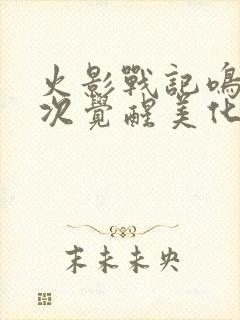 火影戰記鳴
次覺醒美化
末未未央